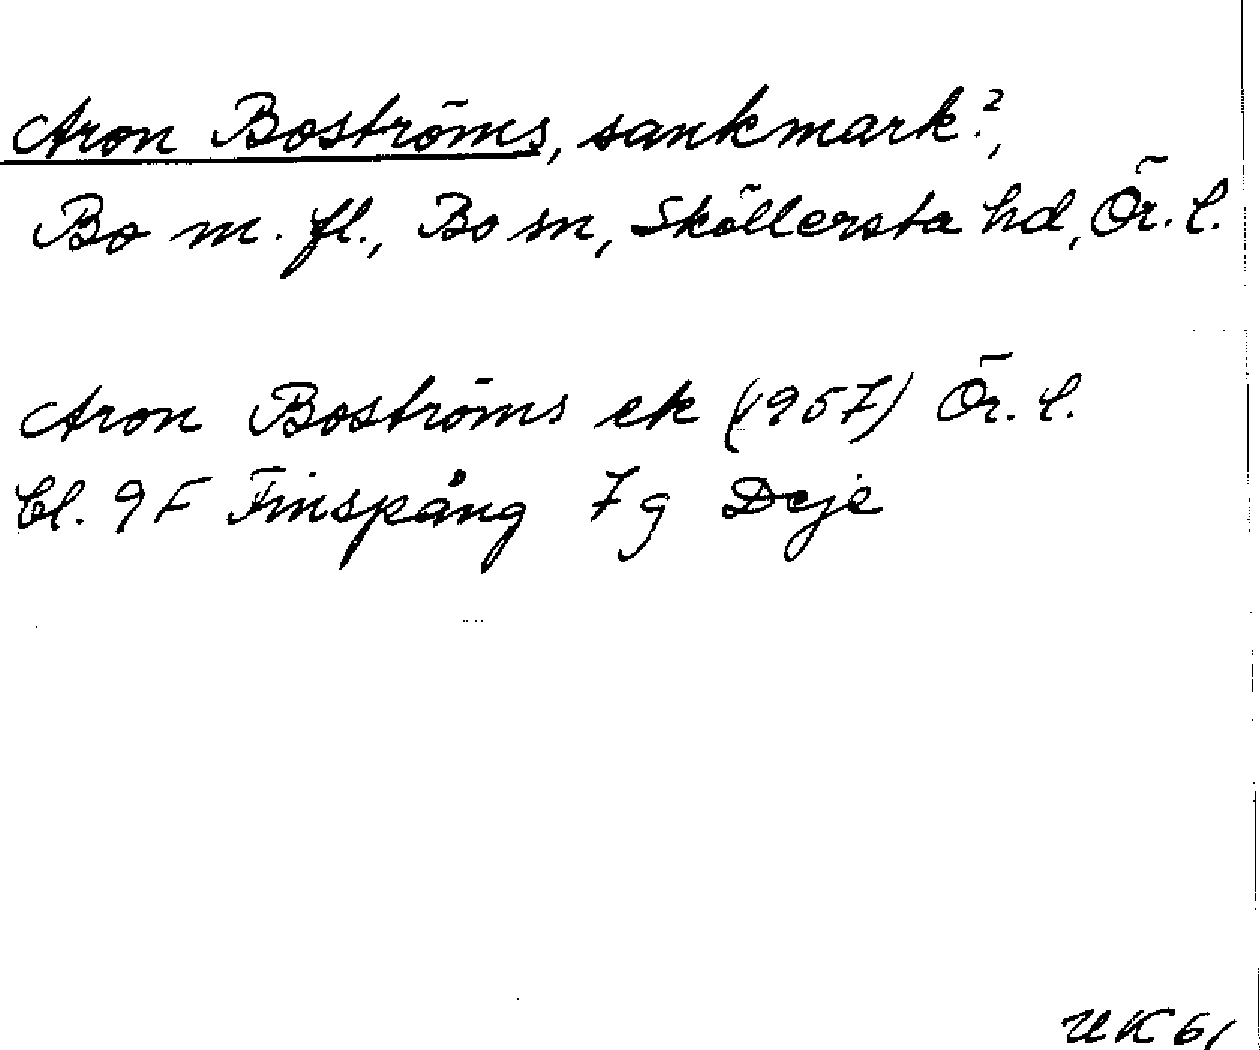 Aron Boströms, sankmark?,
Bo m. fl., Bo sn, Sköllersta hd, Ör. l.
Aron Boströms ek (1957) Ör. l.
bl. 9F Finspång 7g Deje
UK 61